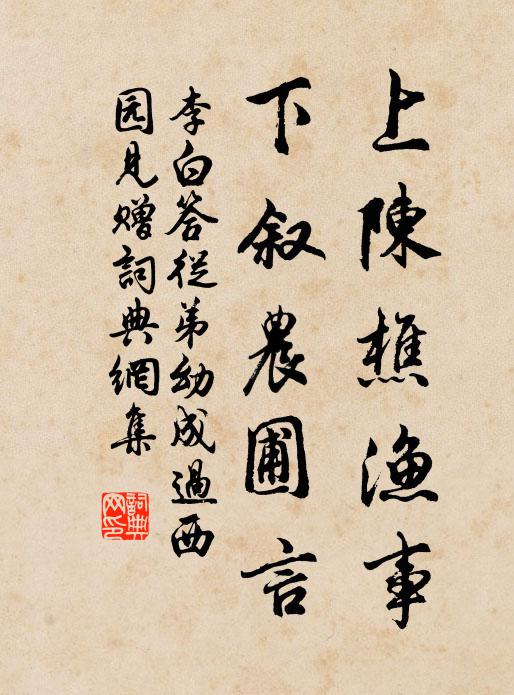 上陳樵漁事
下叙農圃言
李白答從弟幼成過西
园見贈詞典網集
詞典
网印